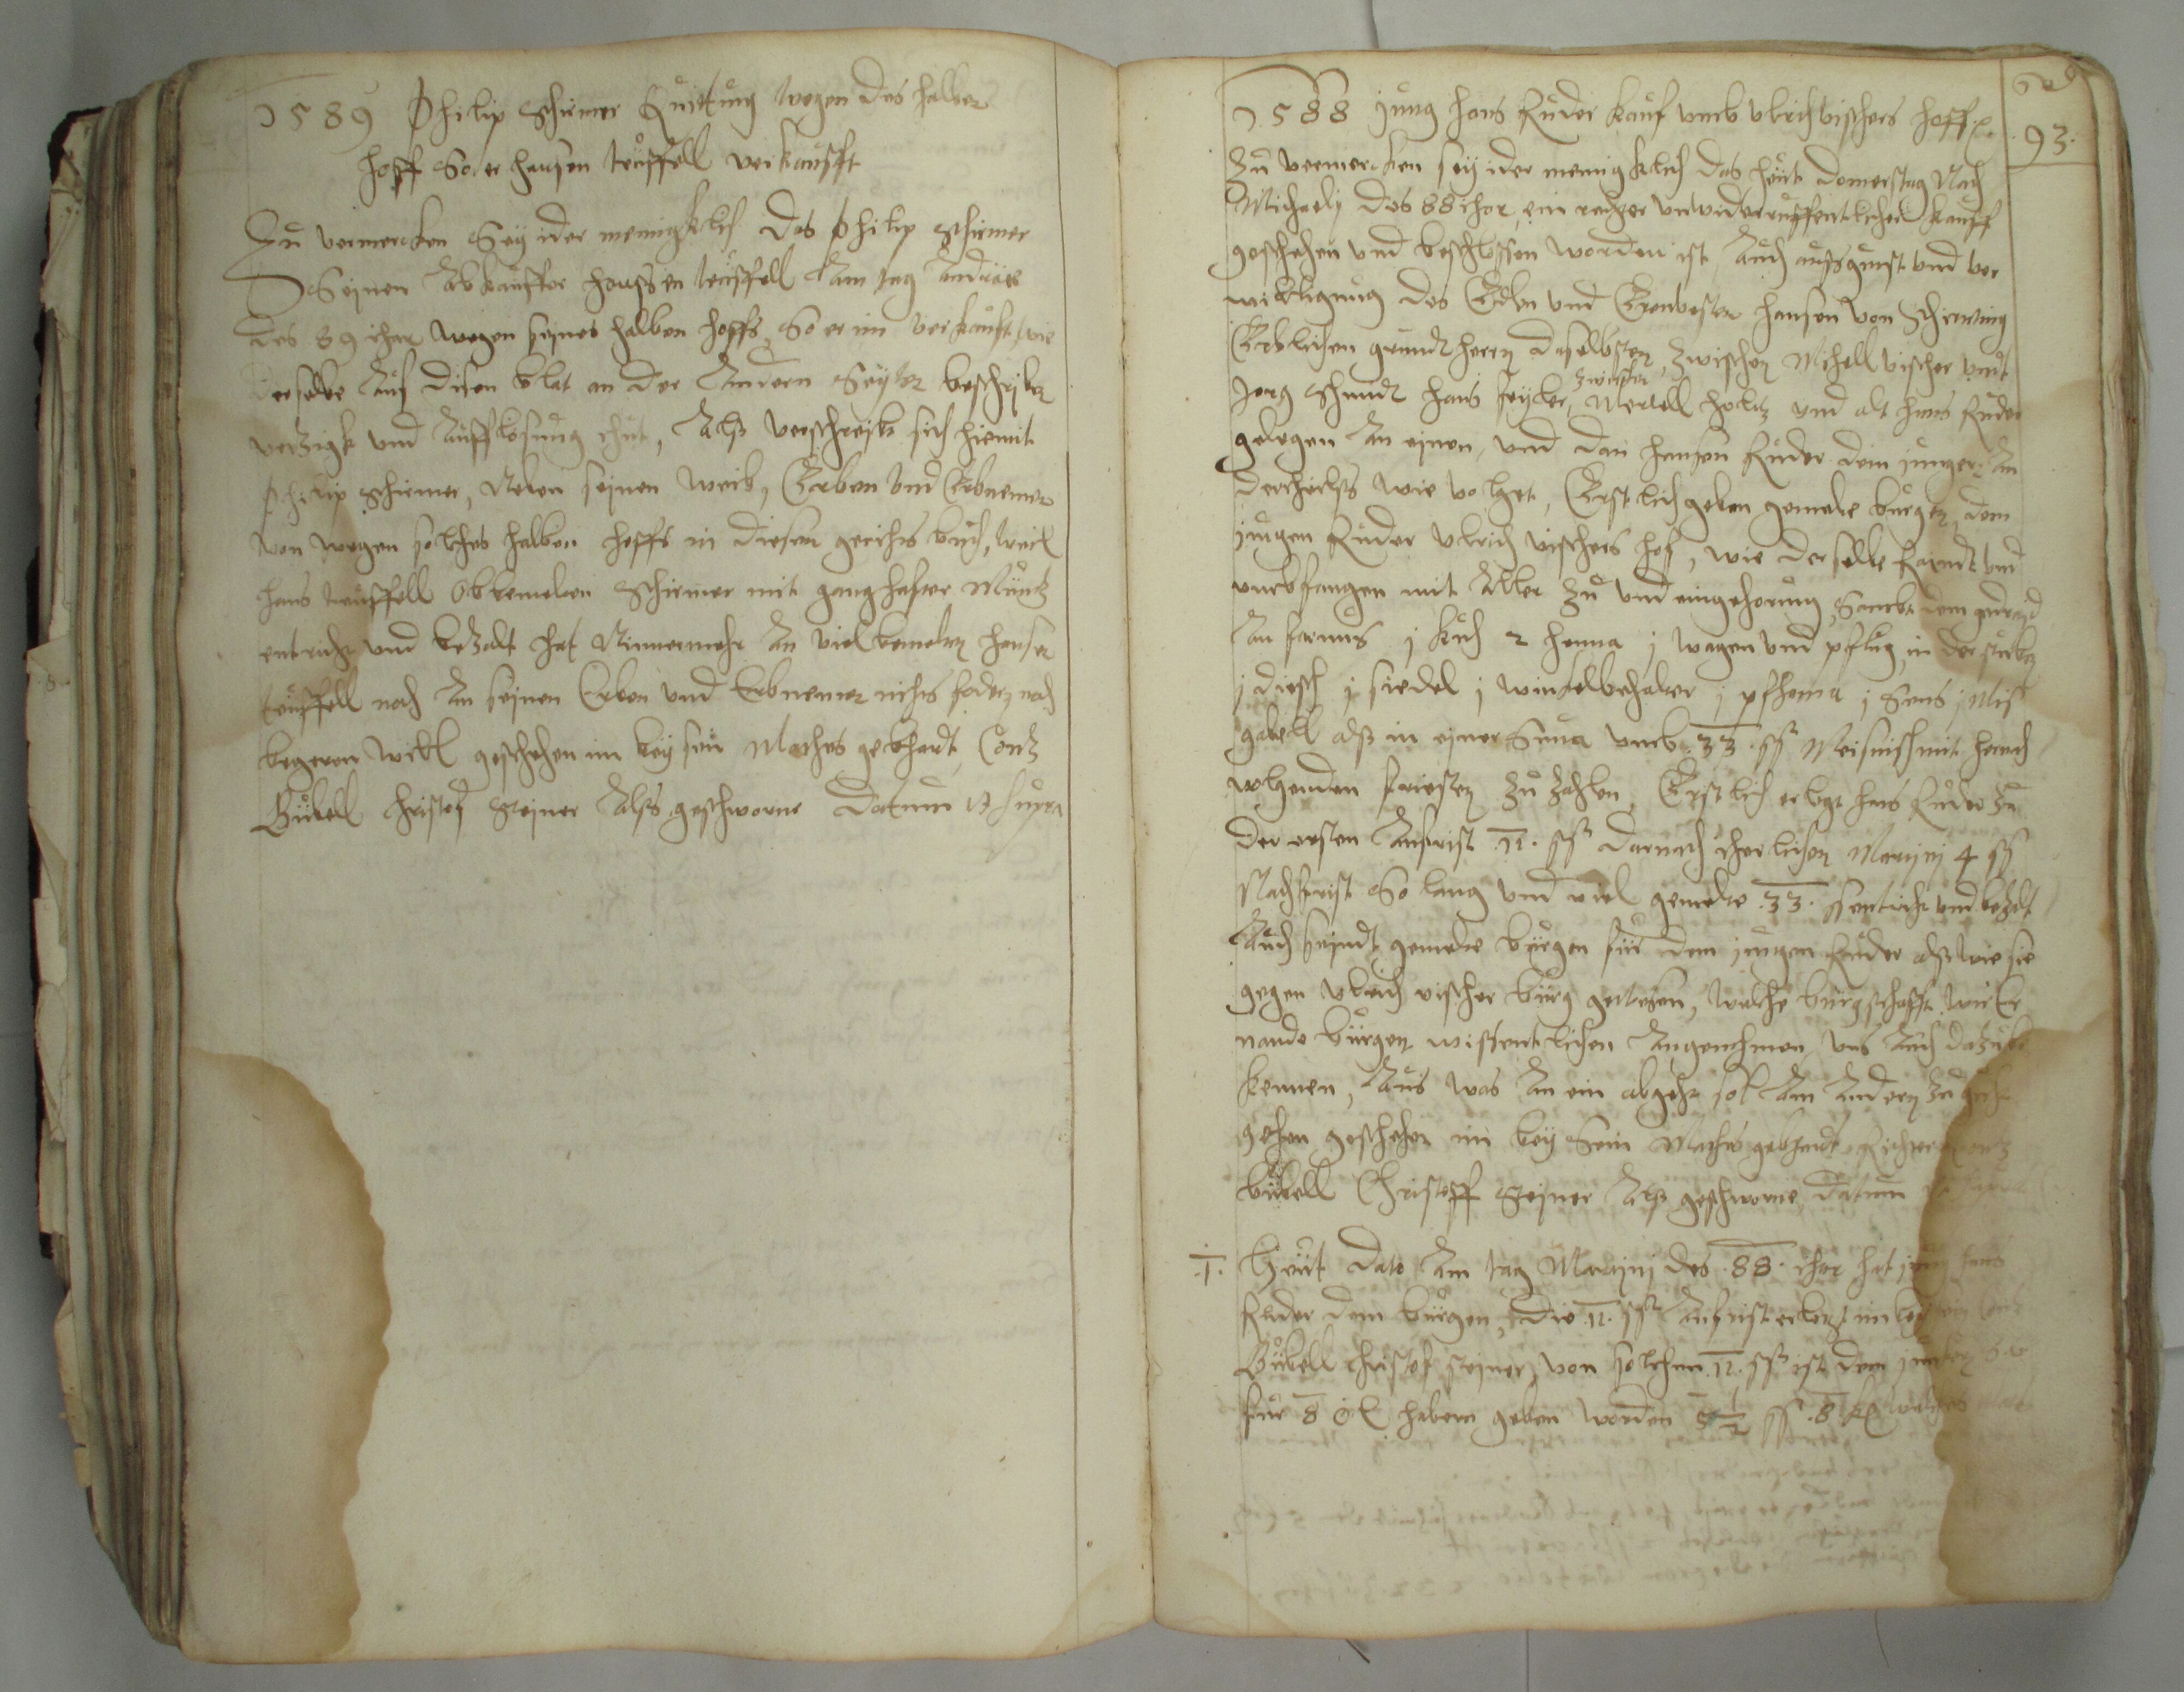 1589 Philip Schirmer Quittung wegen des halben
hoff So er hansen teuffell verkaufft
Zu vermercken Sey ider menigklich das Philip Schirmer
Seinen Abkauffer hanssen teuffell Am tag Andreae
des 89 ihar wegen seines halben hoffs, So er im verkauft, wie
derselbe Auf disen blat an der Andern Seyten beschriben
verzigk und Aufflosung thut, Alß verschreibt sich hiemit
Philip Schirmer, Neben seinen weib, Erben und Erbnemer
von wegen solches halben hoffs in diesem gerichts buch, weil
hans teuffell obbemelten Schirmer mit ganghafter Muntz
entricht und bezalt hat Nimmermehr An viel bemelten hansen
teuffell noch An seinen Erben und Erbnemer nichts fodern noch
begeren will geschehen im beysein Mathes gebhardt, Contz
Gubell Christof Steiner Alß geschworne Datum ut supra
1588 Jung hans Ruder kauf umb Ulrich vischers hoff
93.
Zu vermercken sey ider menigklich das heut donnerstag Nach
Michaely des 88 ihar, ein rechter unwiderruffentlicher kauff
geschehen und beschlossen worden ist Auch auß gunst und ver
willigung des Edln und Ernvesten hansen von Schirnting
Erblichen grundt herrn daselbsten, Zwischen Michell vischer und
Jorg Schmidt hans Zwischen Merttell und alt hans Ruder
gelegen An einen, und dan hansen Ruder dem jungern An
dertheilß wie volget, Erstlich geben gemelte burgen, dem
jungen Ruder Ulrich vischers hof, wie derselbe Raindt und
umbfangen mit Aller Zu und eingehorung, Sambt dem
An farnus j kuh 2 j wagen und pflug, in der stuben
j disch j siedel j winkelbehalter j j Sens j Mist
gabell alß in einer Suma umb 33 ßß Meisnisch mit
fristen zu zahlen, Erstlich erlegt hans Ruder Zu
der ersten Anfrist 12. ßß darnach iherlichen Martini 4 ßß
Nachfrist So lang und viel gemelte 33. ßß entricht und bezalt
Auch seindt gemelte burgen fur dem jungen Ruder alß wie sie
gegen Ulrich vischer burg gewesen, welche burgschafft
burgen wissentlichen Angenehmen, uns Auch dazu be
kennen, Auß was An ein abgeht sol Am Andern zu
gehen geschehen im bey Sein Mathes gebhardt Richter Contz
Gubell Christoff Steiner Alß geschworne, Datum
1. Heut dato Am tag Martini des 88. ihar hat jung hans
Ruder dem burgen, die 12. ßß Anfrist erlegt im
Gubell Christof Steiner, von solchen 12. ßß ist dem
fur 8 habern geben worden 5 1/2 ßß 8